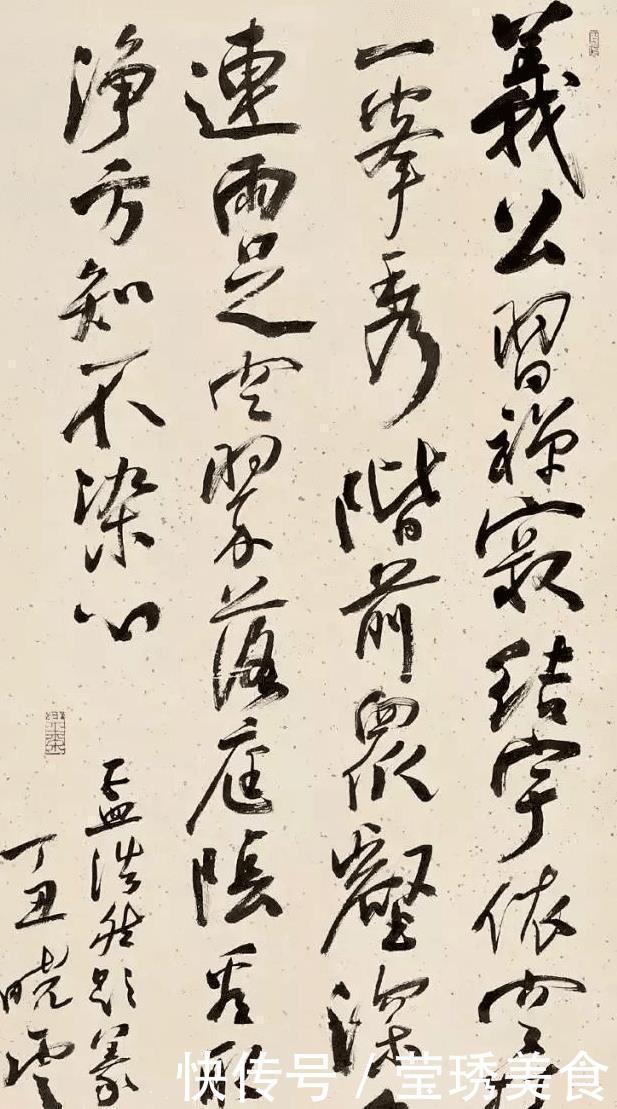 義公習禪寂結宇依空
一峯秀階前眾壑深
連雨足空翠落庭陰看取
淨方知不染心
孟浩然題義
丁丑曉雲
快传号 / 莹琇美食